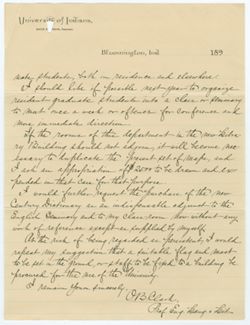 University of Indiana,
Bloomington, Ind. 189
many students, both in residence and elsewhere.
I should like if possible next year to organize
resident graduate students into a class or seminary
to meet once a week or oftener for conference and
more immediate direction.
If the rooms of this department in the new Library
Building should not adjoin, it will become nec-
essary to duplicate the present set of maps, and
I ask an appropriation of $200 to be drawn and ex-
pended on that case for that purpose.
I would further request the purchase of the new
Century Dictionary as an indispensable adjunct to the
English Seminary and to my class-room now without any
work of reference except as supplied by myself.
At the risk of being regarded as persistent, I would
repeat my suggestion that a suitable flag and mast
to be set in the ground, or staff to be fixed to a building be
procured for the use of the University.
I remain Yours sincerely
Prof. Eng. Lang. & Lit.